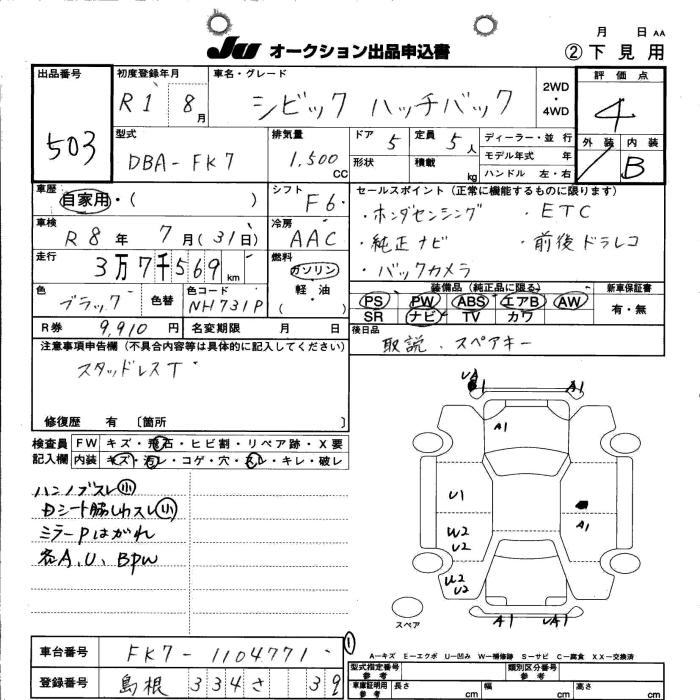 月 日 AA
JU オークション出品申込書
② 下見用
出品番号
503
初度登録年月
R1 8月
車名・グレード
シビック ハッチバック
2WD・4WD
評価点
4
外装 内装
B
型式
DBA-FK7
排気量
1,500 CC
ドア 5
形状
定員 5人
積載 kg
ディーラー・並行
モデル年式 年
ハンドル 左・右
車歴
自家用・( )
シフト
F6
車検
R8年 7月(31日)
冷房
AAC
走行
3万7千569km
燃料
ガソリン
軽油
( )
色
ブラック
色替
色コード
NH731P
R券 9,910円
名変期限 月 日
セールスポイント(正常に機能するものに限ります)
・ホンダセンシング ・ETC
・純正ナビ ・前後ドラレコ
・バックカメラ
装備品(純正品に限る)
PS PW ABS エアB AW
SR ナビ TV カワ
新車保証書
有・無
後日品
取説、スペアキー
注意事項申告欄(不具合内容等は具体的に記入してください)
スタッドレスT
修復歴 有〔箇所 〕
検査員記入欄
FW キズ・飛石・ヒビ割・リペア跡・X要
内装 キズ・汚レ・コゲ・穴・スレ・キレ・破レ
ハンドブスレ小
Dシート脇しわスレ小
ミラーPはがれ
各A、U、Bpw
UA
A1 A1
A1
U1
A1
W2
U2
U2
U2
A1 UA1
スペア
車台番号 FK7-1104771
登録番号 島根 334さ 39
①
A−キズ E−エクボ U−凹み W−補修跡 S−サビ C−腐食 XX−交換済
型式指定番号
参考
類別区分番号
参考
車庫証明用
参考
長さ cm 幅 cm 高さ cm